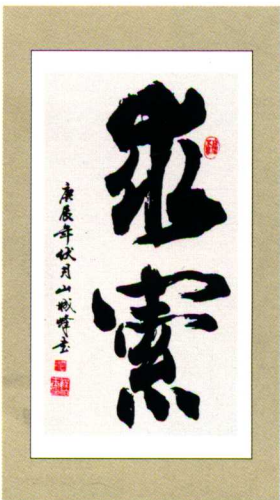 求索
庚辰年伏月山城峰书